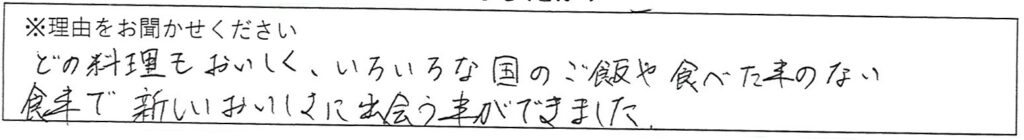 ※理由をお聞かせください
どの料理もおいしく、いろいろな国のご飯や食べた事のない
食事で新しいおいしさに出会う事ができました.